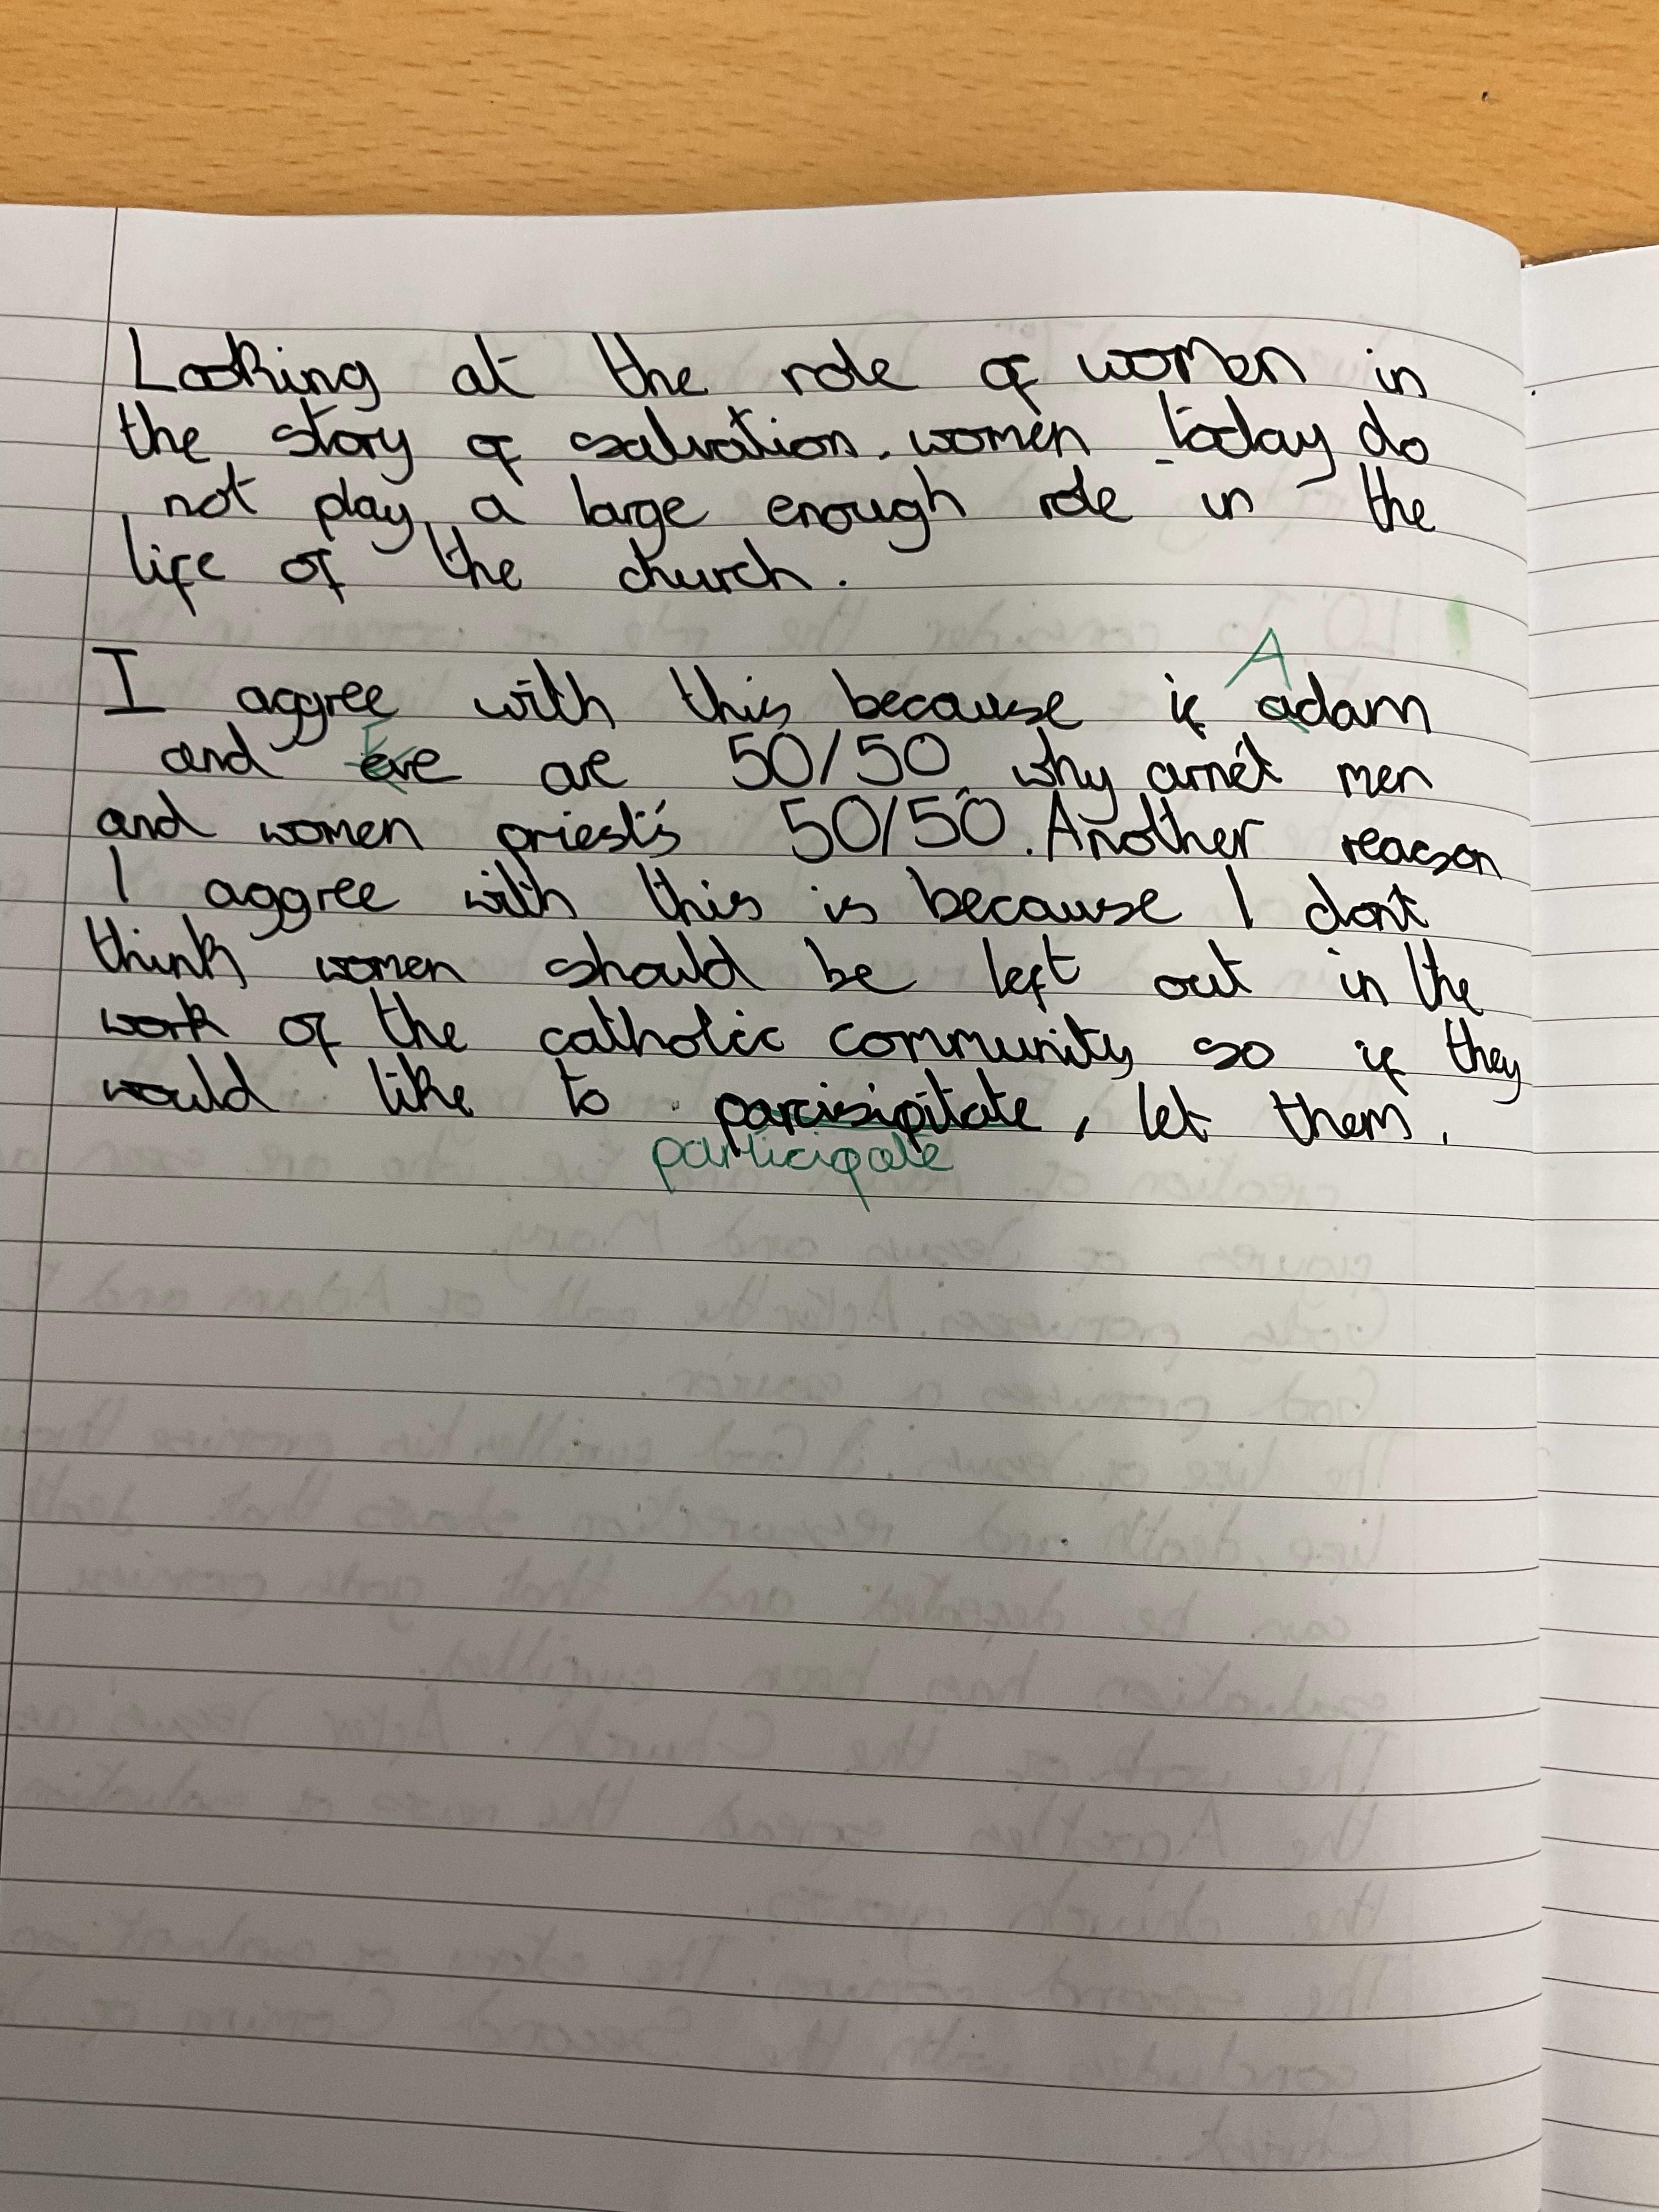 Looking at the role of women in
the story of salvation. women today do
not play a large enough role in the
life of the church.
A
I aggree with this because if adam
and Eve are 50/50, why arn't men
and women priest's 50/50. Another reason
I aggree with this is because I don't
think women should be left out in the
work of the catholic community so if they
would like to parcisipitate, let them.
participate